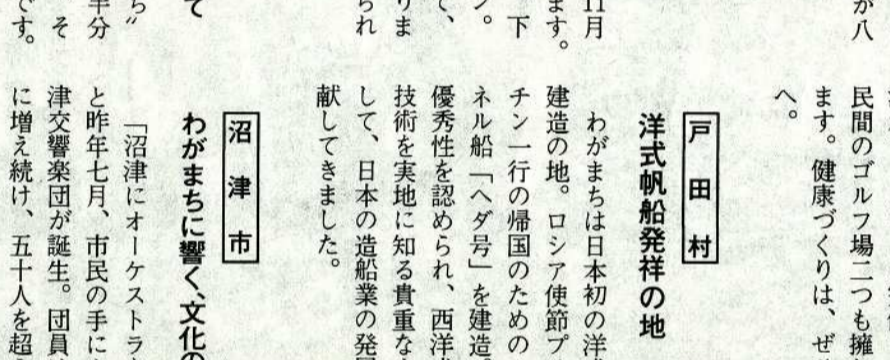 が八
民間のゴルフ場二つも擁
ます。健康づくりは、ぜ
へ。
戸田村
洋式帆船発祥の地
わがまちは日本初の洋
建造の地。ロシア使節プ
チン一行の帰国のための
ネル船「ヘダ号」を建造
優秀性を認められ、西洋
技術を実地に知る貴重な
して、日本の造船業の発
献してきました。
沼津市
わがまちに響く、文化の
「沼津にオーケストラ
と昨年七月、市民の手に
津交響楽団が誕生。団員
に増え続け、五十人を超
11月
ます。
下
ン。
て、
りま
られ
て
ち〃
半分
そ
です。